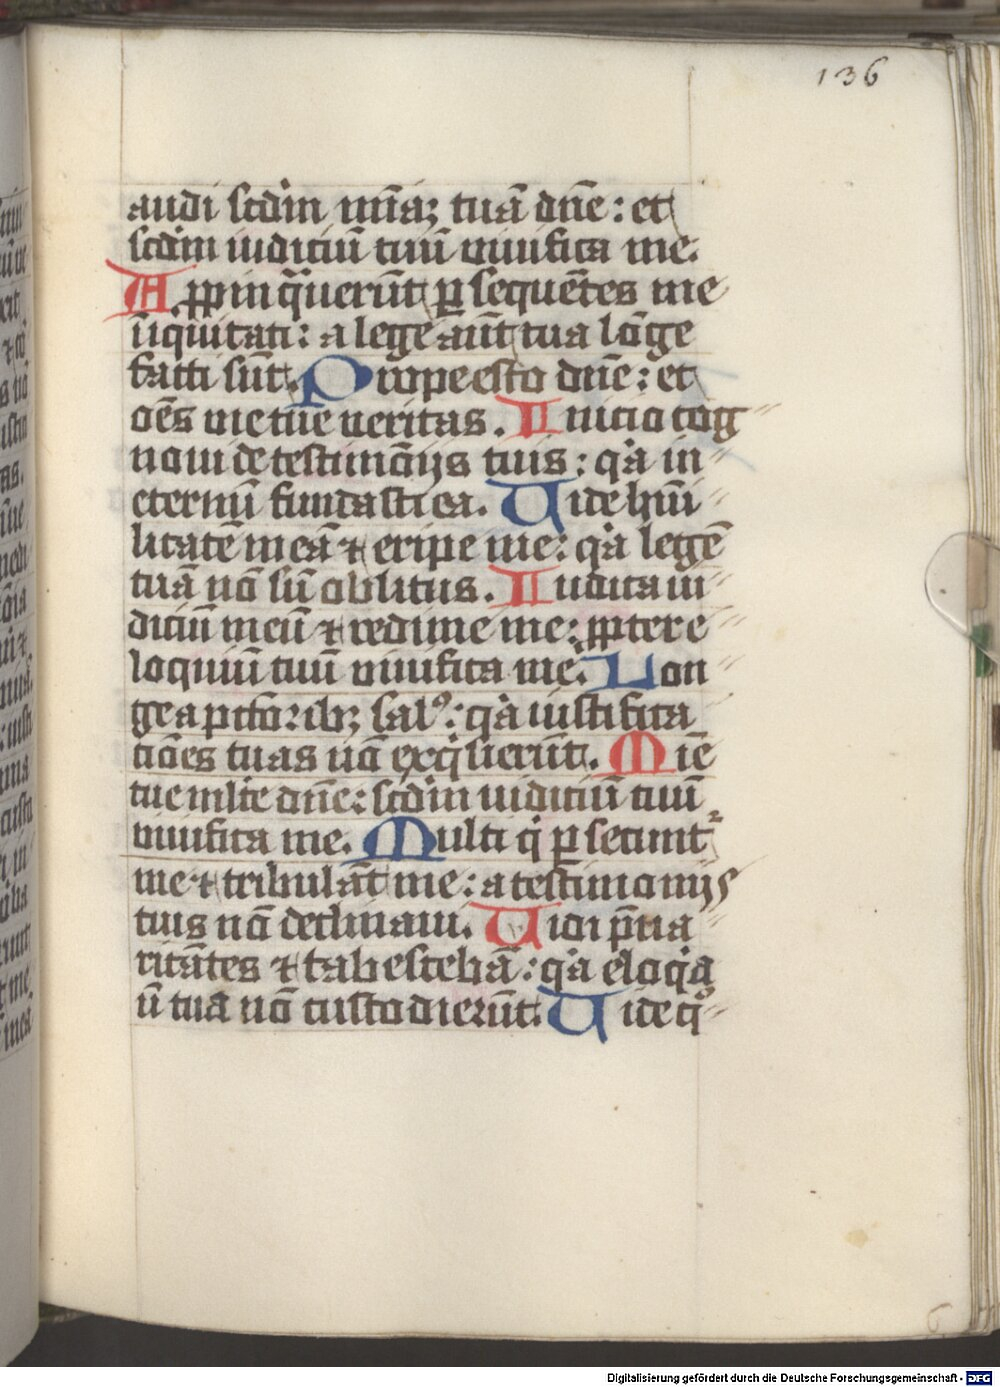 136
audi scd̄m mīaꝫ tuā dn̄e : et
scd̄m iudiciū tuū viuifica me.
Aꝓpinq̄uerūt ꝑsequētes me
īiquitati : a lege aūt tua lōge
facti sūt. Prope esto dn̄e : et
oēs vie tue veritas. Inicio cog
noui de testimōijs tuis : qͣa in
eternū fundasti ea. Uide hūi
litatē meā ⁊ eripe me : qͣa legē
tuā nō sū oblitus. Iudica iu
diciū meū ⁊ redime me : ꝓpter e
loquiū tuū viuifica me. Lon
ge a pctōribꝫ salꝰ : qͣa iustifica
tiōes tuas nō exqͥsierūt. Mīe
tue ml̄te dn̄e : scd̄m iudiciū tuū
viuifica me. Multi qͥ ꝑsecunt̄
me ⁊ tribulāt me : a testimonijs
tuis nō declinaui. Uidi p̄ua
ricātes ⁊ tabescebā : qͣa eloqͥa
ū tua nō custodierūt. Uide qͦ
6
Digitalisierung gefördert durch die Deutsche Forschungsgemeinschaft - DFG